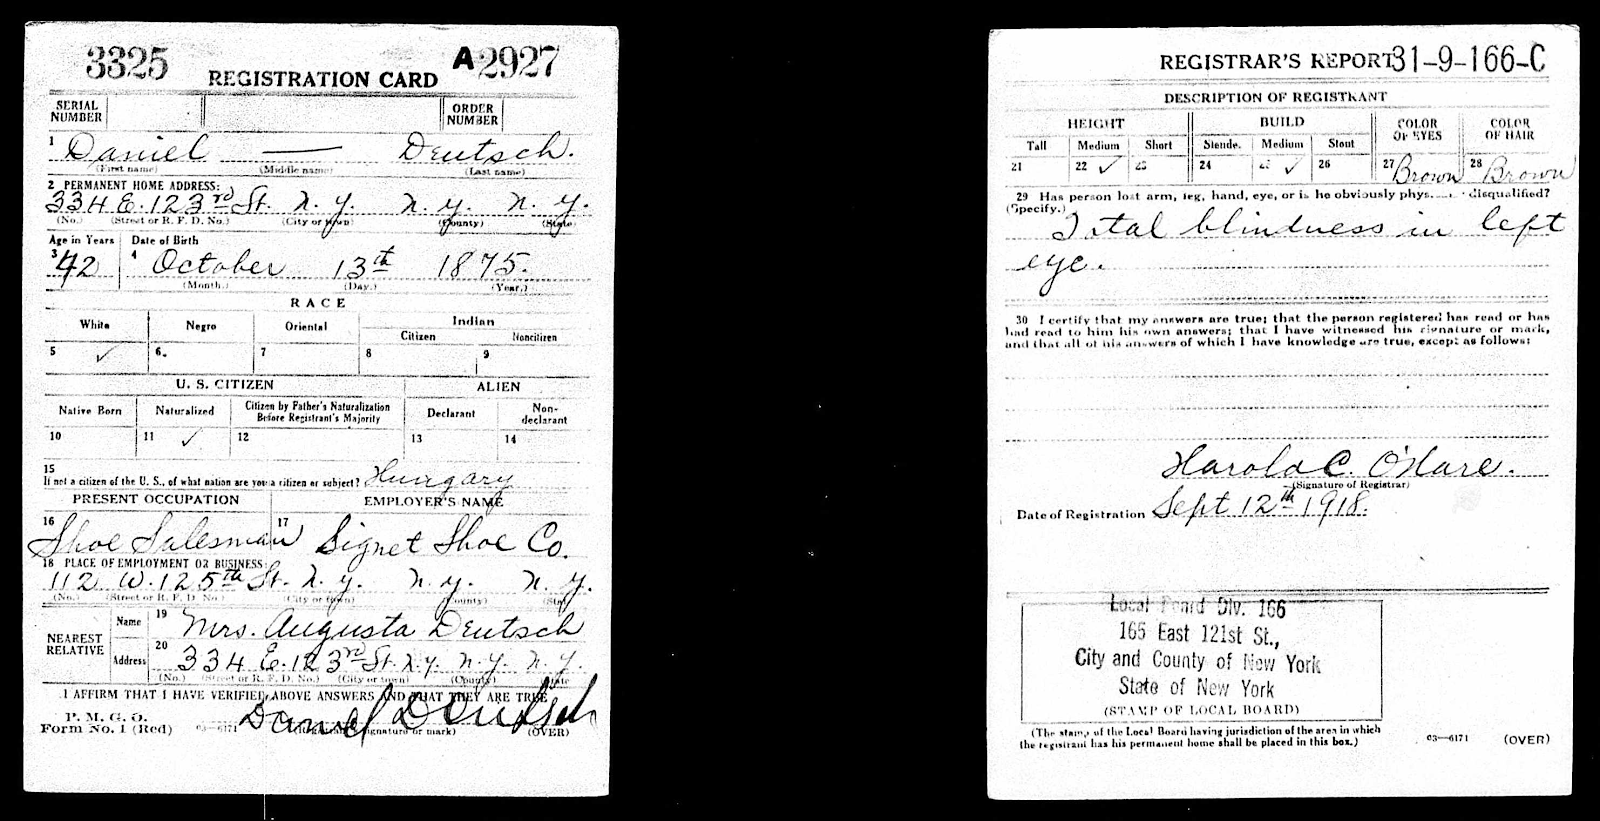 3325 REGISTRATION CARD A 2927
SERIAL NUMBER ORDER NUMBER
1 Daniel — Deutsch.
(First name) (Middle name) (Last name)
2 PERMANENT HOME ADDRESS:
334 E. 123rd St. N. Y. N. Y. N. Y.
(No.) (Street or R. F. D. No.) (City or town) (County) (State)
Age in Years Date of Birth
3 42 4 October 13th 1875.
(Month.) (Day.) (Year.)
RACE
White Negro Oriental Indian
Citizen Noncitizen
5 ✓ 6. 7 8 9
U. S. CITIZEN ALIEN
Native Born Naturalized Citizen by Father's Naturalization Before Registrant's Majority Declarant Non-declarant
10 11 ✓ 12 13 14
15
If not a citizen of the U. S., of what nation are you a citizen or subject? Hungary
PRESENT OCCUPATION EMPLOYER'S NAME
16 Shoe Salesman 17 Signet Shoe Co.
18 PLACE OF EMPLOYMENT OR BUSINESS:
112 W. 125th St. N. Y. N. Y. N. Y.
(No.) (Street or R. F. D. No.) (City or town) (County) (State)
NEAREST RELATIVE
Name 19 Mrs. Augusta Deutsch
Address 20 334 E. 123rd St. N. Y. N. Y. N. Y.
(No.) (Street or R. F. D. No.) (City or town) (County) State
I AFFIRM THAT I HAVE VERIFIED ABOVE ANSWERS AND THAT THEY ARE TRUE
P. M. G. O.
Form No. 1 (Red) 03—6171 Daniel Deutsch (OVER)
(Registrant's signature or mark)
REGISTRAR'S REPORT 31-9-166-C
DESCRIPTION OF REGISTRANT
HEIGHT BUILD COLOR OF EYES COLOR OF HAIR
Tall Medium Short Slende. Medium Stout
21 22 ✓ 23 24 25 ✓ 26 27 Brown 28 Brown
29 Has person lost arm, leg, hand, eye, or is he obviously phys. disqualified?
(Specify.) Total blindness in left
eye.
30 I certify that my answers are true; that the person registered has read or has
had read to him his own answers; that I have witnessed his signature or mark,
and that all of his answers of which I have knowledge are true, except as follows:
Harold C. O'Hare.
(Signature of Registrar)
Date of Registration Sept 12th 1918.
Local Board Div. 166
165 East 121st St.,
City and County of New York
State of New York
(STAMP OF LOCAL BOARD)
(The stamp of the Local Board having jurisdiction of the area in which
the registrant has his permanent home shall be placed in this box.)
03—6171 (OVER)